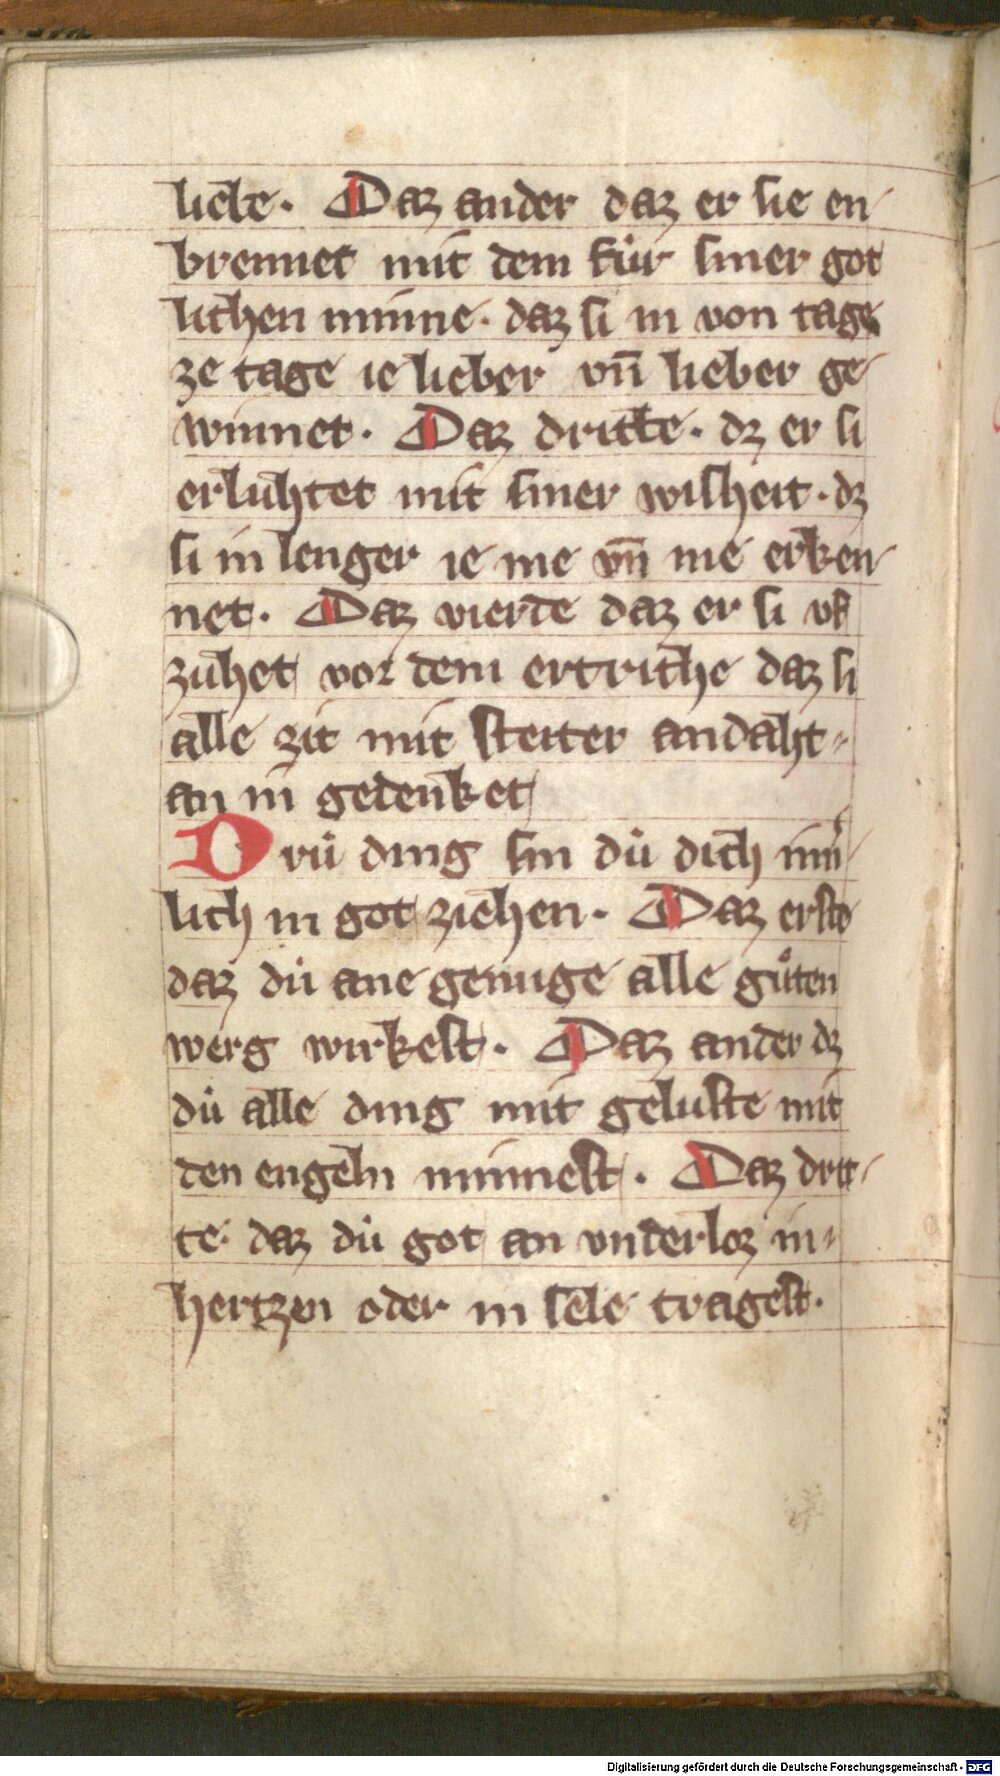 liebe. Daz ander daz er sie en-
brennet mit dem fúr siner got
lichen minne. daz si in von tage
ze tage ie lieber vn̄ lieber ge-
winnet. Daz dritte. dz er si
erluhtet mit siner wisheit. dz
si in lenger ie me vn̄ me erken-
net. Daz vierde daz er si vf
zuhet vor dem ertriche daz si
alle zit mit steiter andaht-
an in gedenket
Drú ding sin dú dich inn̾-
lich in got ziehen. Daz erste
daz dú ane genuge alle gůten
werg wirkest. Daz ander dz
dú alle ding mit geluste mit
den engeln minnest. Daz drit-
te daz dú got an vnderloz in-
hertzen oder in sele tragest.
Digitalisierung gefördert durch die Deutsche Forschungsgemeinschaft - DFG